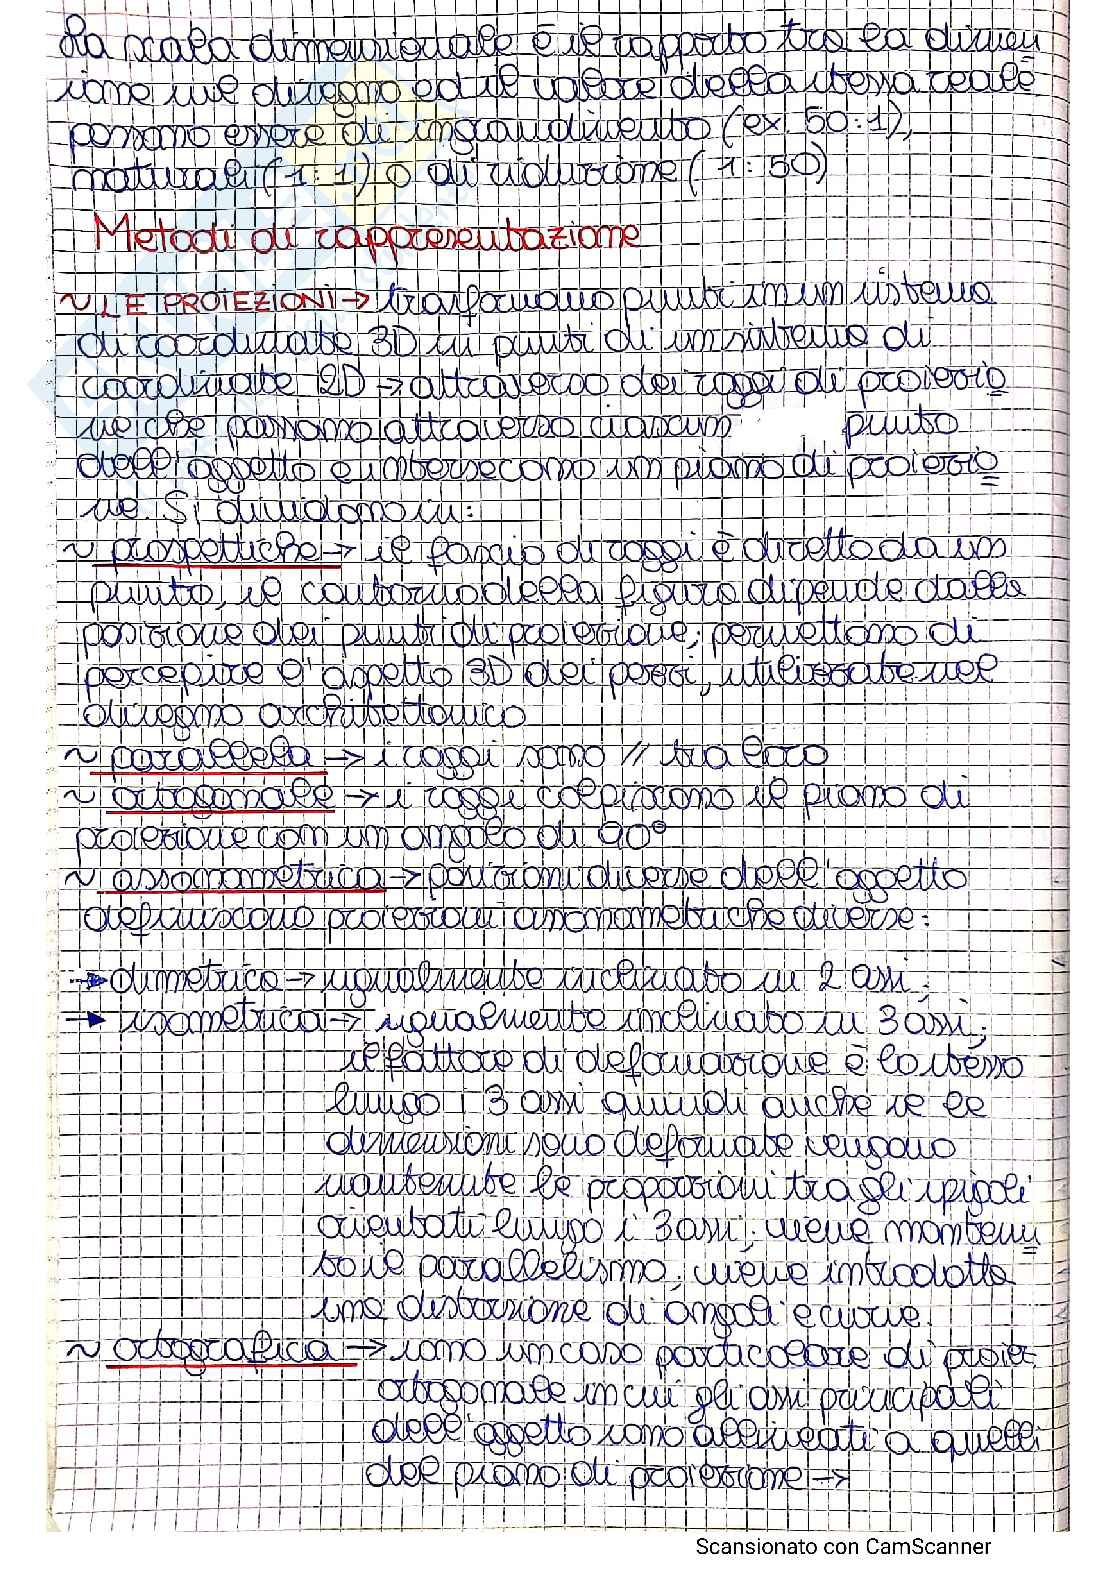 La scala dimensionale è il rapporto tra la dimen
sione nel disegno ed il valore della stessa reale
possono essere di ingrandimento (ex. 50:1),
naturali (1:1) o di riduzione (1:50)
Metodi di rappresentazione
~ LE PROIEZIONI → trasformano punti in un sistema
di coordinate 3D in punti di un sistema di
coordinate 2D → attraverso dei raggi di proiezio
ne che passano attraverso ciascun punto
dell'oggetto e intersecano un piano di proiezio
ne. Si dividono in:
~ prospettiche → il fascio di raggi è diretto da un
punto, il contorno della figura dipende dalla
posizione dei punti di proiezione; permettono di
percepire l'aspetto 3D dei pezzi, utilizzate nel
disegno architettonico
~ parallela → i raggi sono // tra loro
~ ortogonale → i raggi colpiscono il piano di
proiezione con un angolo di 90°
~ assonometrica → posizioni diverse dell'oggetto
definiscono proiezioni assonometriche diverse:
→ dimetrica → ugualmente inclinato in 2 assi;
→ isometrica → ugualmente inclinato in 3 assi;
il fattore di deformazione è lo stesso
lungo i 3 assi quindi anche se le
dimensioni sono deformate vengono
mantenute le proporzioni tra gli spigoli
orientati lungo i 3 assi; viene mantenu
to il parallelismo; viene introdotta
una distorsione di angoli e curve.
~ ortografica → sono un caso particolare di proiez.
ortogonale in cui gli assi principali
dell'oggetto sono allineati a quelli
del piano di proiezione →
Scansionato con CamScanner